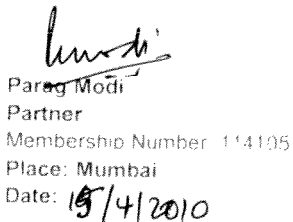 Parag Modi
Partner
Membership Number 114105
Place: Mumbai
Date: 15/4/2010